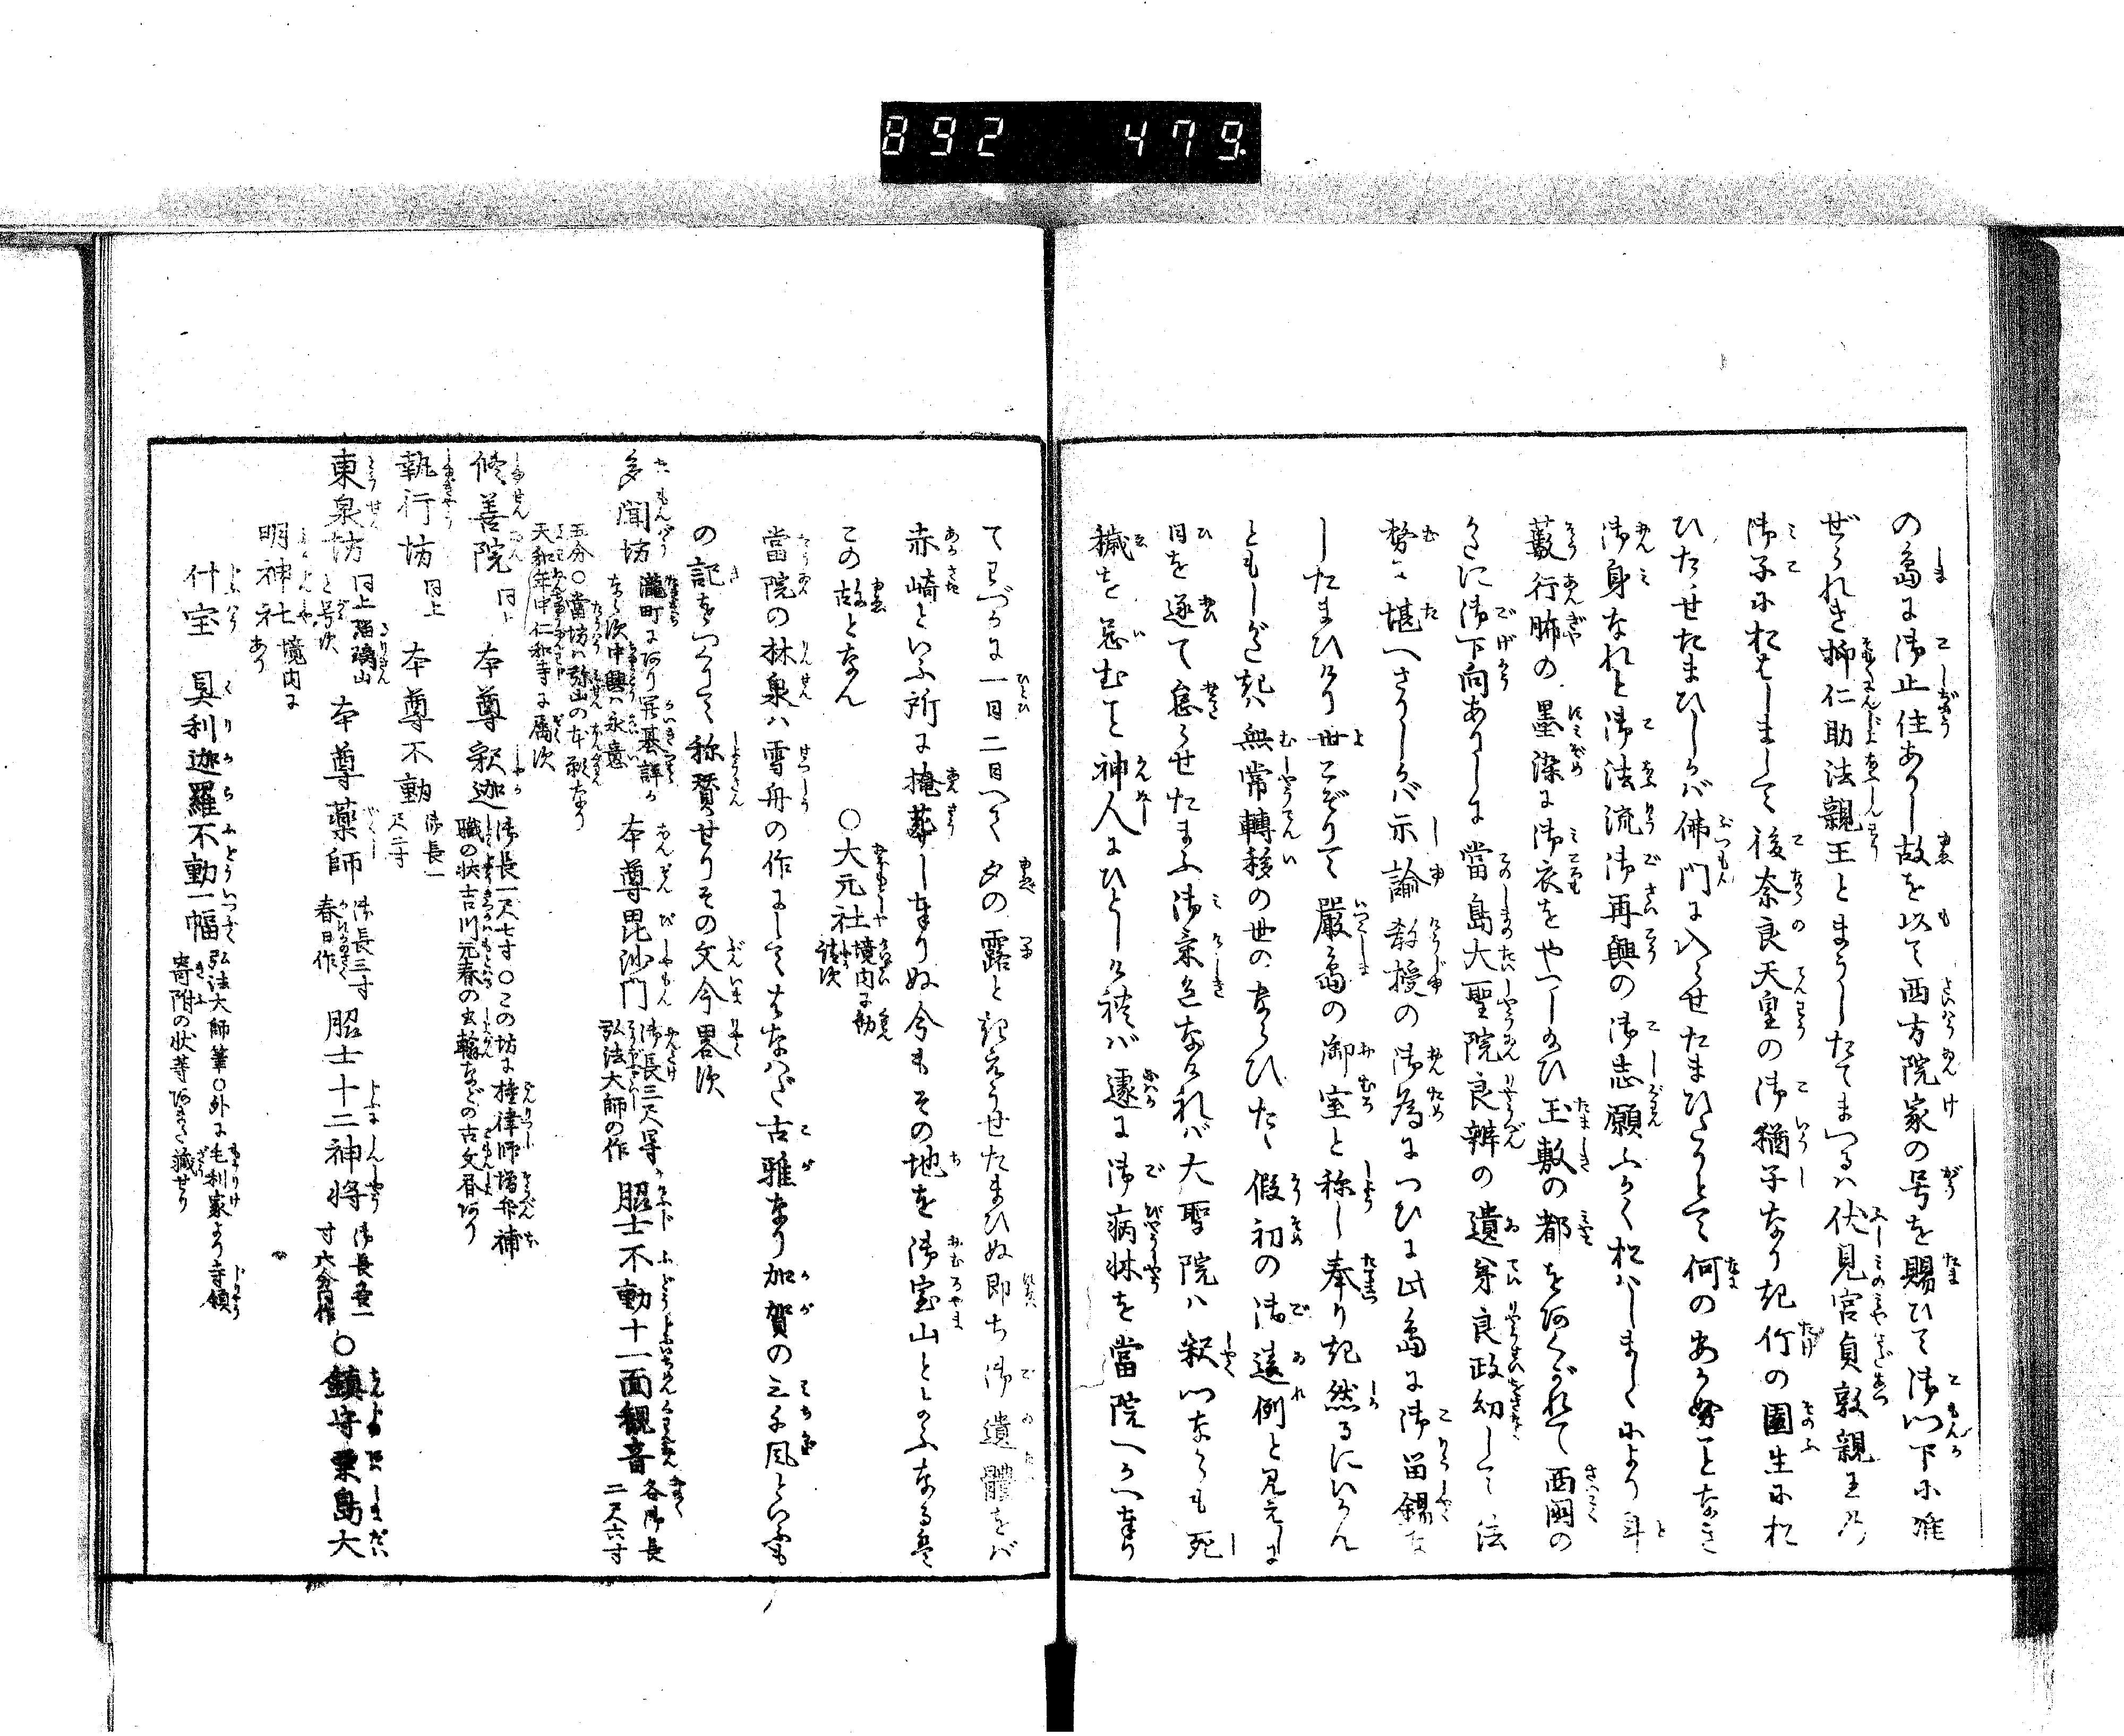 892 479
の島に御止住ありし故を以て西方院家の号を賜ひて御門下に准
ぜられき抑仁助法親王とまうしたてまつるハ伏見宮貞敦親王乃
御子におはしまして後奈良天皇の御猶子なりき竹の園生にお
ひたゝせたまひしかバ佛門に入らせたまひたりとて何のあかぬことなき
御身なれと御法流御再興の御志願ふかくおはしましゝにより斗
藪行脚の墨染に御衣をやつし給ひ玉敷の都をあくがれて西国の
かたに御下向ありしに當島大聖院良辨の遺弟良政幼して法
務に堪へさりしかバ示諭教授の御為につひに此島に御留錫な
したまひけり世こぞりて嚴島の御室と称し奉りき然るにいかん
ともしがたきハ無常轉移の世のならひたゝ假初の御違例と見えしに
日を逐て怠らせたまふ御氣色なけれバ大聖院ハ釈門ながらも死
穢を忌むこと神人にひとしけれバ遽に御病牀を當院へうつしまゐり
てわづかに一日二日へて夕の露と消えうせたまひぬ即ち御遺體をバ
赤崎といふ所に掩葬しまゐりぬ今もその地を御室山ととなふなるは
この故となん
○大元社 境内に勧請す
當院の林泉ハ雪舟の作にしてはなハだ古雅なり加賀の三千風といふもの
の記をつくりて称賛せりその文今畧す
多聞坊 瀧町にあり開基詳かならず中興ハ永意
本尊毘沙門 御長三尺 弘法大師の作
脇士不動十一面觀音 各御長二尺六寸
五分○當坊ハ弥山の本願なり
天和年中仁和寺に属す
修善院 同上 本尊釈迦 御長一尺七寸○この坊に権律師増弁補
職の状吉川元春の書翰などの古文書あり
執行坊 同上 本尊不動 御長一尺二寸
東泉坊 同上瑠璃山と号す 本尊薬師 御長三寸春日作 脇士十二神将 御長各一寸六分同作 ○鎮守粟島大
明神社 境内にあり
什宝 具利迦羅不動一幅 弘法大師筆○外に毛利家より寺領
寄附の状等あまた蔵せり